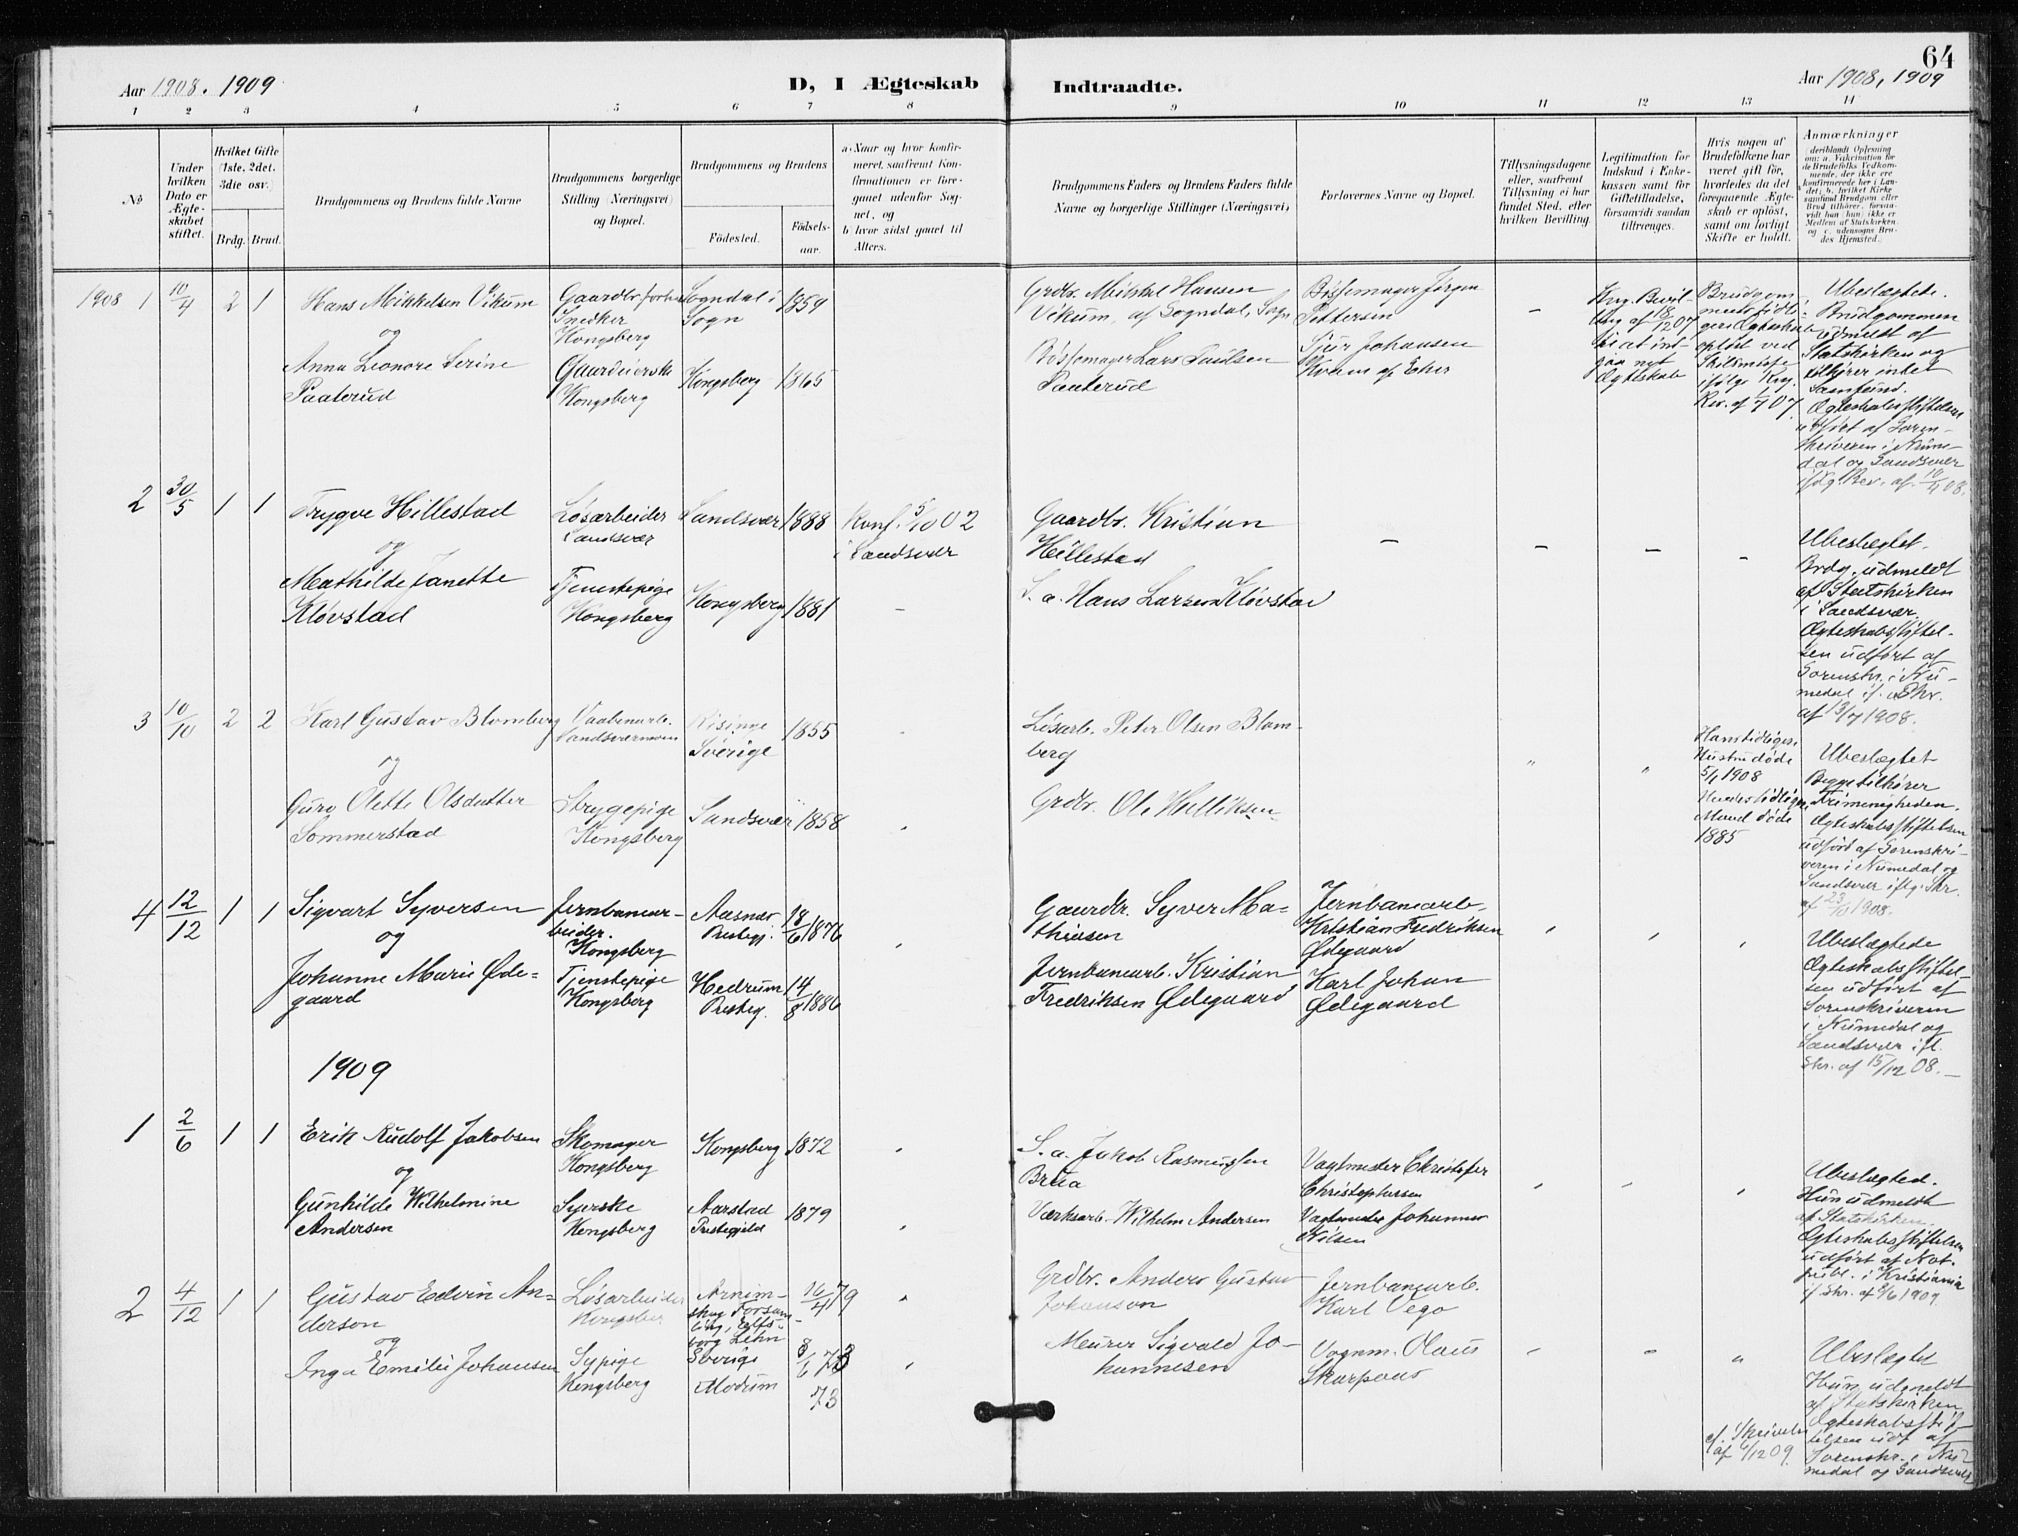 64
Aar 1908. 1909
D, I Ægteskab
Indtraadte.
Aar 1908, 1909
1 2 3 4 5 6 7 8 9 10 11 12 13 14
No
Under
hvilken
Dato er
Ægte-
skabet
stiftet.
Hvilket Gifte
(1ste, 2det,
3die osv.)
Brdg. Brud.
Brudgommens og Brudens fulde Navne
Brudgommens borgerlige
Stilling (Næringsvei)
og Bopæl.
Brudgommens og Brudens
Fødested.
Fødsels-
aar.
a. Naar og hvor konfir-
meret, saafremt Kon-
firmationen er fore-
gaaet udenfor Sog-
net, og
b. hvor sidst gaaet til
Alters.
Brudgommens Faders og Brudens Faders fulde
Navne og borgerlige Stillinger (Næringsvei)
Forlovernes Navne og Bopæl.
Tillysningsdagene
eller, saafremt
Tillysning ei har
fundet Sted, efter
hvilken Bevilling.
Legitimation for
Indskud i Enke-
kassen samt for
Giftetilladelse,
forsaavidt saadan
tiltrænges.
Hvis nogen af
Brudefolkene har
været gift før,
hvorledes da det
foregaaende Ægte-
skab er opløst,
samt om lovligt
Skifte er holdt.
Anmærkninger
(deriblandt Oplysning
om: a. Vakcination for
de Brudefolks Vedkom-
mende, der ikke ere
konfirmerede her i Lan-
det; b. hvilket Kirke
samfund Brudgom eller
Brud tilhører, forsaa-
vidt han (hun) ikke er
Medlem af Statskirken
og c. udensogns Bru-
des Hjemsted.)
1908 1 10/4 2 1
Hans Mikkelsen Vikum
og
Anna Leonore Serine
Paaterud
Gaardbr. forhen
Snedker
Kongsberg
Gaardeierske
Kongsberg
Sogndal i
Sogn
1859
Kongsberg 1865
Grdbr. Mikkel Hansen
Vikum, af Sogndal, Sogn
Bøssemager Lars Paulsen
Paaterud
Bøssemager Jørgen
Pettersen
Sjur Johansen
Kvam af Eker
-
Kng. Bevil-
ling af 18/12 07
til at ind-
gaa nyt
Ægteskab
Brudgom-
mens tidli-
gere Ægteskab
opløst ved
Skilsmisse
ifølge Kng.
Res. af 1/7 07.
Ubeslægtede.
Brudgommen
udmeldt af
Statskirken og
tilhører intet
Samfund.
Ægteskabsstiftelsen
udført af Soren-
skriveren i Nume-
dal og Sandsvær
ifølg. Skr. af 10/4 08.
2 30/5 1 1
Trygve Hillestad
og
Mathilde Janette
Kløvstad
Løsarbeider
Sandsvær
Tjenestepige
Kongsberg
Sandsvær 1888
Kongsberg 1881
Konf. 5/10 02
i Sandsvær
-
Gaardbr. Kristian
Hillestad
S. a. Hans Larsen Kløvstad
- - - -
Ubeslægtet.
Brdg. udmeldt
af Statskirken
i Sandsvær
Ægteskabsstiftel-
sen udført af
Sorenskr. i Nu-
medal if. Skr.
af 13/7 1908.
3 10/10 2 2
Karl Gustav Blomberg
og
Guro Olette Olsdatter
Sommerstad
Vaabenarb.
Sandsværmoen
Strygepige
Kongsberg
Risinge
Sverige
1855
Sandsvær 1858
Løsarb. Peter Olsen Blom-
berg
Grdbr. Ole Helliksen
Hans tidligere
Hustru døde
5/1 1908
Hendes tidligere
Mand døde
1885
Ubeslægtet
Begge tilhører
Frimenigheden.
Ægteskabsstiftelsen
udført af Sorenskri-
veren i Numedal og
Sandsvær iflg. Skr.
af 23/10 1908.
4 12/12 1 1
Sigvart Syversen
og
Johanne Marie Øde-
gaard
Jernbanear-
beider.
Kongsberg
Tjenstepige
Kongsberg
Aasnæs
Prestegj.
18/6 1876
Hedrum
Presteg.
14/8 1886
Gaardbr. Syver Ma-
thiesen
Jernbanearb. Kristian
Fredriksen Ødegaard
Jernbanearb.
Kristian Fredriksen
Ødegaard
Karl Johan
Ødegaard
Ubeslægtede
Ægteskabsstiftel-
sen udført af
Sorenskriveren
i Numedal og
Sandsvær ifl.
Skr. af 15/12 08.-
1909
1 2/6 1 1
Erik Rudolf Jakobsen
og
Gunhilde Wilhelmine
Andersen
Skomager
Kongsberg
Syerske
Kongsberg
Kongsberg 1872
Aarstad
Prestegjeld
1879
S. a. Jakob Rasmussen
Brua
Værksarb. Wilhelm Andersen
Vagtmester Christofer
Christophersen
Vagtmester Johannes
Nilsen
Ubeslægted.
Hun udmeldt
af Statskirken.
Ægteskabsstiftelsen
udført af Not.
publ. i Kristiania
if. skr. af 2/6 1909.
2 4/12 1 1
Gustav Edvin An-
derson
og
Inga Emilie Johansen
Løsarbeider
Kongsber
Sypige
Kongsberg
Arnim-
skog Forsam-
ling, Elfs-
borg Lehn
Sverige
Modum
16/4 79
8/6 73
73
Grdbr. Anders Gustav
Johanson
Meurer Sigvald Jo-
hannesen
Jernbanearb.
Karl Vego
Vognm. Olaus
Skarpaas
cf. Skrivelse
af 6/12 09.
Ubeslægtet
Hun udmeldt
af Statskirken
Ægteskabsstif-
telsen udf. af
Sorenskr. i Nu-
medal og Sandsvær